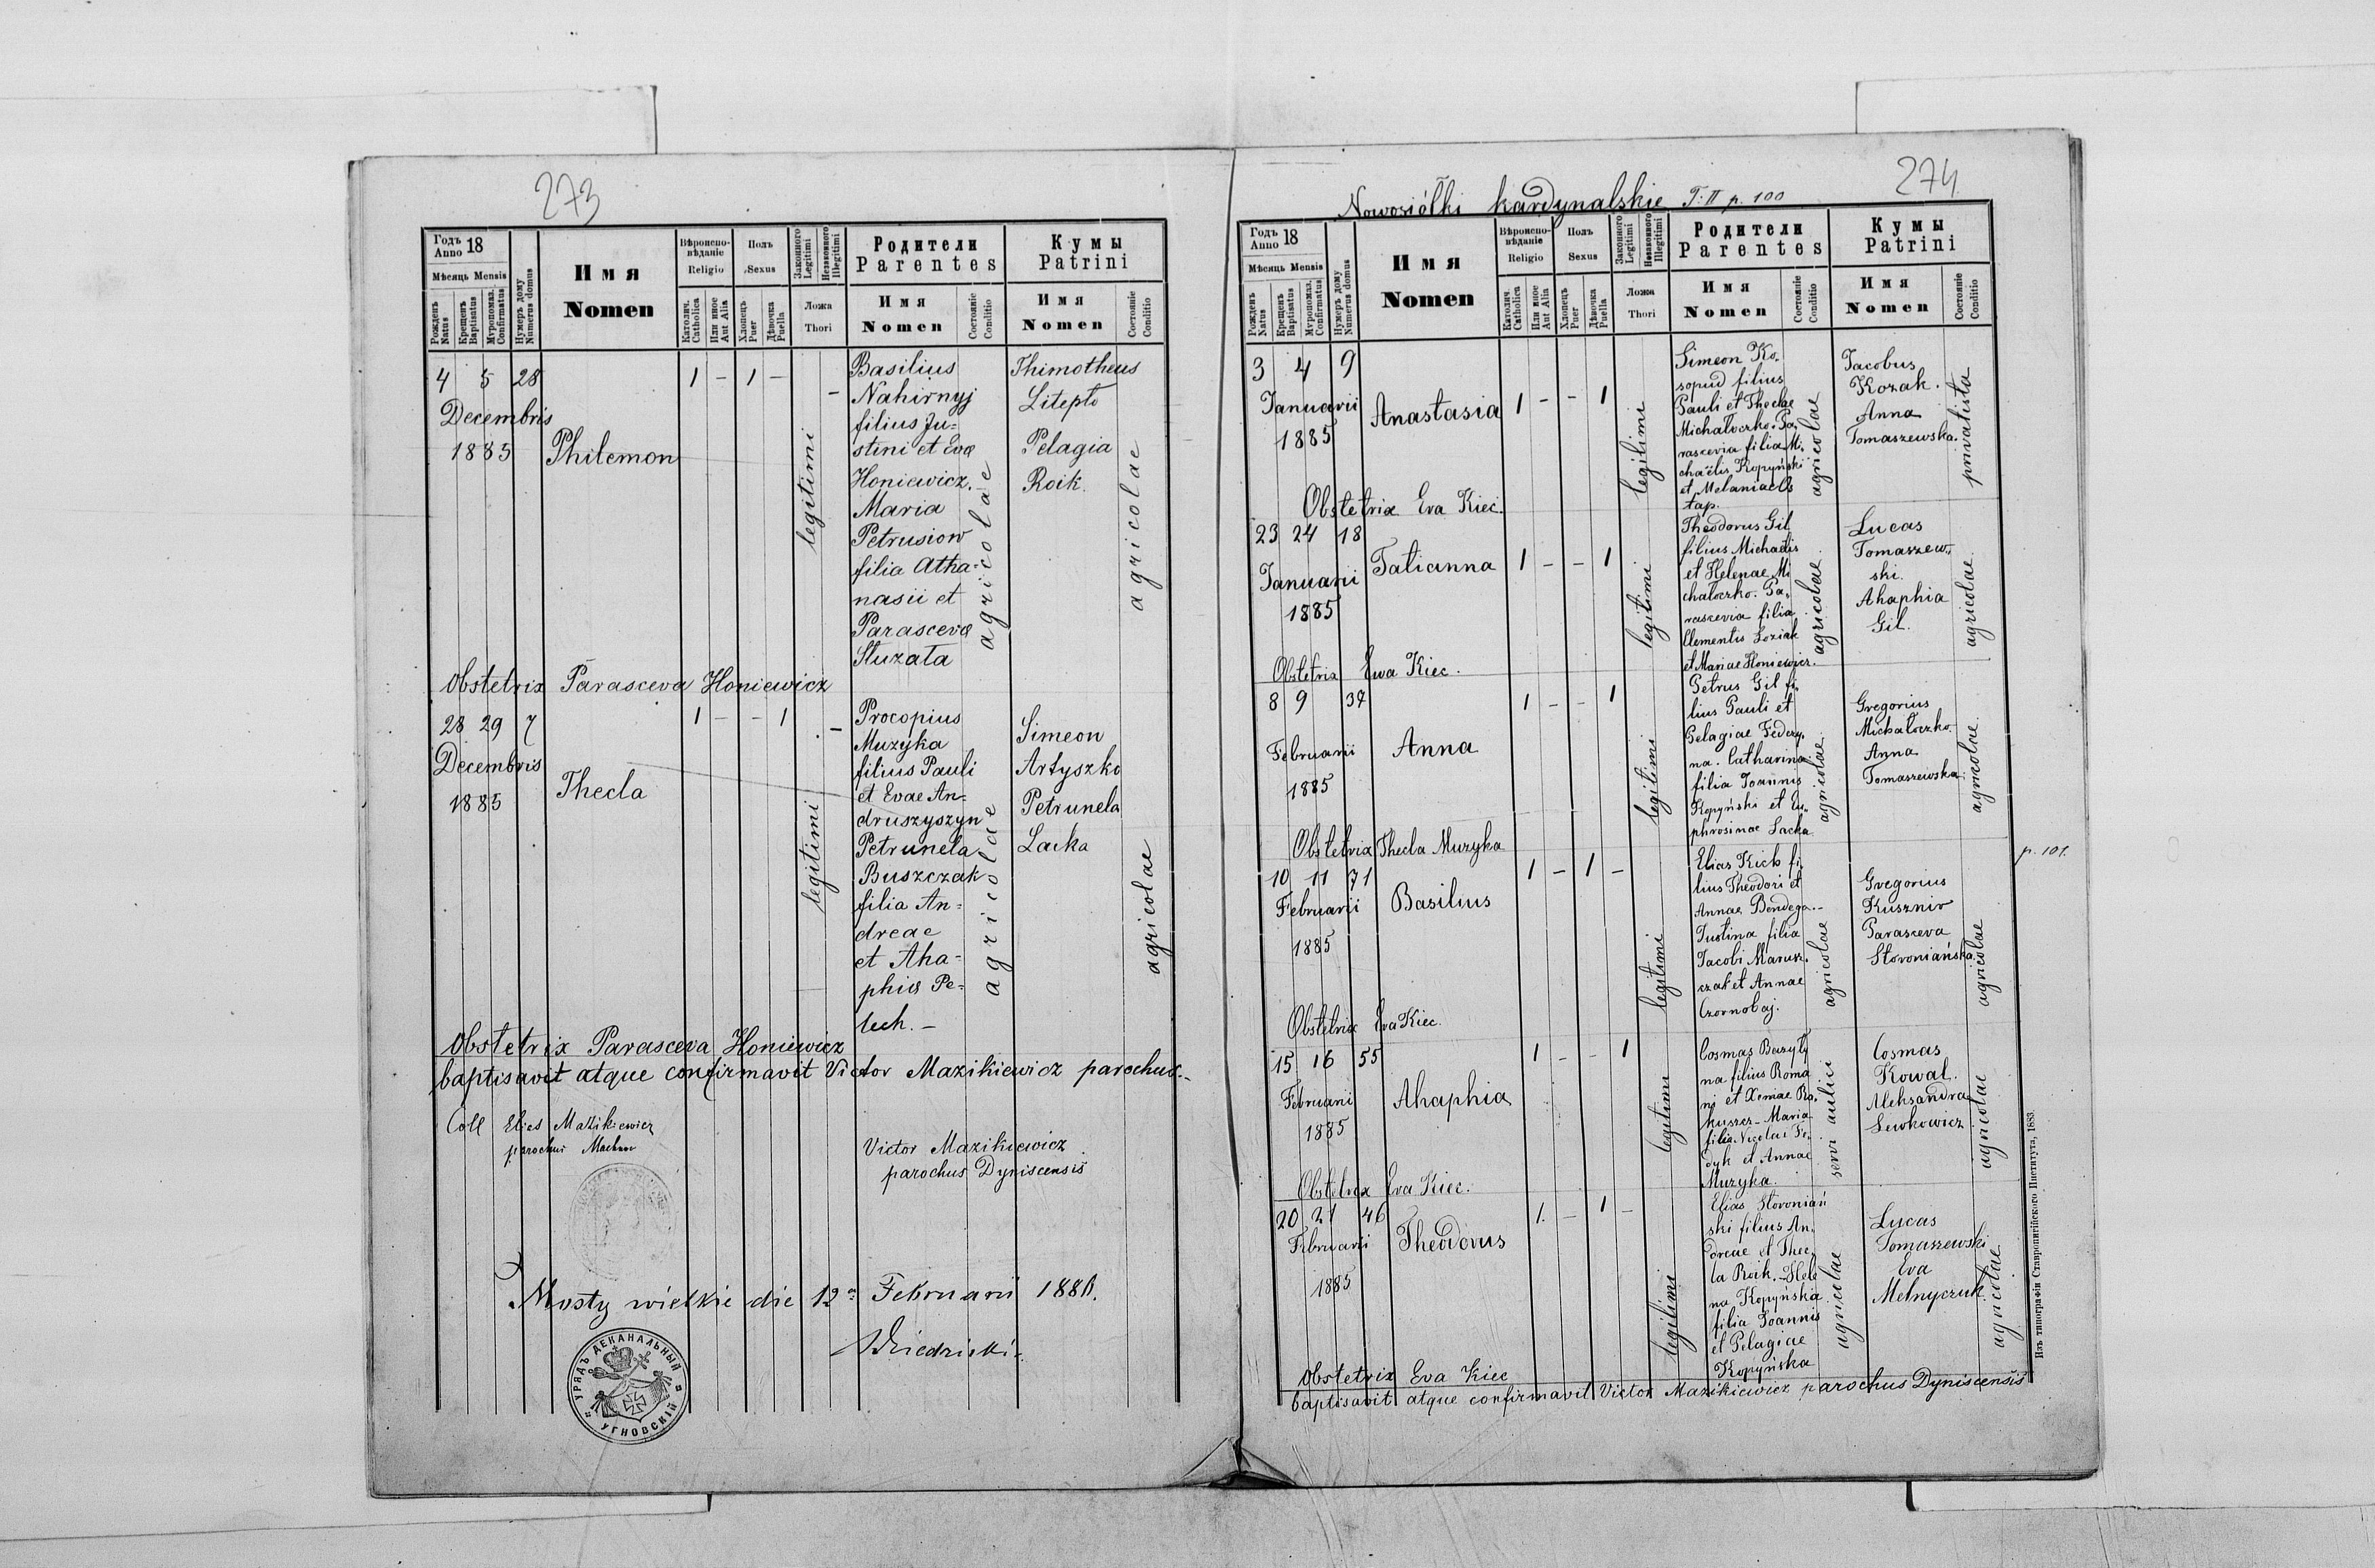 273
Годъ 18
Anno
Мѣсяцъ Mensis
Рожденъ Natus
Крещенъ Baptisatus
Муропомаз. Confirmatus
Нумеръ дому Numerus domus
Имя
Nomen
Вѣроиспо-
вѣданіе
Religio
Католич. Catholica
Или иное Aut Alia
Полъ
Sexus
Хлопецъ Puer
Дѣвочка Puella
Законного Legitimi
Незаконного Illegitimi
Ложа
Thori
Родители
Parentes
Имя
Nomen
Состояніе Conditio
Кумы
Patrini
Имя
Nomen
Состояніе Conditio
4 5 28
Decembris
1885
Philemon
1 - 1 -
legitimi
-
Basilius
Nahirnyj
filius Ju=
stini et Evae
Honiewicz.
Maria
Petrusiow
filia Atha=
nasii et
Parascevae
Słuzała
agricolae
Thimotheus
Litepło
Pelagia
Roik
agricolae
Obstetrix Parasceva Honiewicz
28 29 7
Decembris
1885
Thecla
1 - - 1
legitimi
-
Procopius
Muzyka
filius Pauli
et Evae An=
druszyszyn
Petrunela
Buszczak
filia An=
dreae
et Aha=
phiae Pe=
lech. -
agricolae
Simeon
Artyszko
Petrunela
Lacka
agricolae
Obstetrix Parasceva Honiewicz
baptisavit atque confirmavit Victor Mazikiewicz parochus.-
Coll Elias Mazikiewicz
parochus
Victor Mazikiewicz
parochus Dyniscensis
Mosty wielkie die 12a Februarii 1886.
УРЯДЪ ДЕКАНАЛЬНЫЙ
УГНОВСКІЙ
274
Nowosiółki kardynalskie T: II p. 100
Годъ 18
Anno
Мѣсяцъ Mensis
Рожденъ Natus
Крещенъ Baptisatus
Муропомаз. Confirmatus
Нумеръ дому Numerus domus
Имя
Nomen
Вѣроиспо-
вѣданіе
Religio
Католич. Catholica
Или иное Aut Alia
Полъ
Sexus
Хлопецъ Puer
Дѣвочка Puella
Законного Legitimi
Незаконного Illegitimi
Ложа
Thori
Родители
Parentes
Имя
Nomen
Состояніе Conditio
Кумы
Patrini
Имя
Nomen
Состояніе Conditio
3 4 9
Januarii
1885
Anastasia
1 - - 1
legitimi
Simeon Ko-
sopud filius
Pauli et Theclae
Michałoczko. Pa,
rascevia filia Mi,
chaëlis Kopyński
et Melaniae Os
tap.
agricolae
Jacobus
Kozak.
Anna
Tomaszewska.
privatista
Obstetrix Eva Kiec.
23 24 18
Januarii
1885
Tatianna
1 - - 1
legitimi
Theodorus Gil
filius Michaëlis
et Helenae Mi
chałoczko. Pa,
rascevia filia
Clementis Łoziak
et Mariae Honiewicz.
agricolae
Lucas
Tomaszew,
ski.
Ahaphia
Gil.
agricolae
Obstetrix Ewa Kiec.
8 9 37
Februarii
1885
Anna
1 - - 1
legitimi
Petrus Gil fi,
lius Pauli et
Pelagiae Fedczy,
na. Catharina
filia Joannis
Kopyński et Eu,
phrosinae Lacka
agricolae
Gregorius
Michałoczko
Anna
Tomaszewska.
agricolae
Obstetrix Thecla Muzyka
p. 101.
10 11 71
Februarii
1885
Basilius
1 - 1 -
legitimi
Elias Kich fi,
lius Theodori et
Annae Bendega.-
Justina filia
Jacobi Marusz,
czak et Annae
Czornobaj.
agricolae
Gregorius
Kusznir
Parasceva
Słoroniańska.
agricolae
Obstetrix Eva Kiec.
15 16 55
Februarii
1885
Ahaphia
1 - - 1
legitimi
Cosmas Bazyly
na filius Roma
ni et Xeniae Ro,
kusser- Maria
filia Nicolai Fe,
dyk et Annae
Muzyka.
servi aulici
Cosmas
Kowal.
Aleksandra
Lewkowicz.
agricolae
Obstetrix Eva Kiec.
20 21 46
Februarii
1885
Theodorus
1. - 1 -
legitimi
Elias Słoronian
ski filius An,
dreae et Thec,
la Roik.- Hele
na Kopyńska
filia Joannis
et Pelagiae
Kopyńska
agricolae
Lucas
Tomaszewski
Eva
Melnyczuk.
agricolae
Obstetrix Eva Kiec
baptisavit atque confirmavit Victor Mazikiewicz parochus Dyniscensis
Изъ типографіи Ставропигійского Института, 1883.